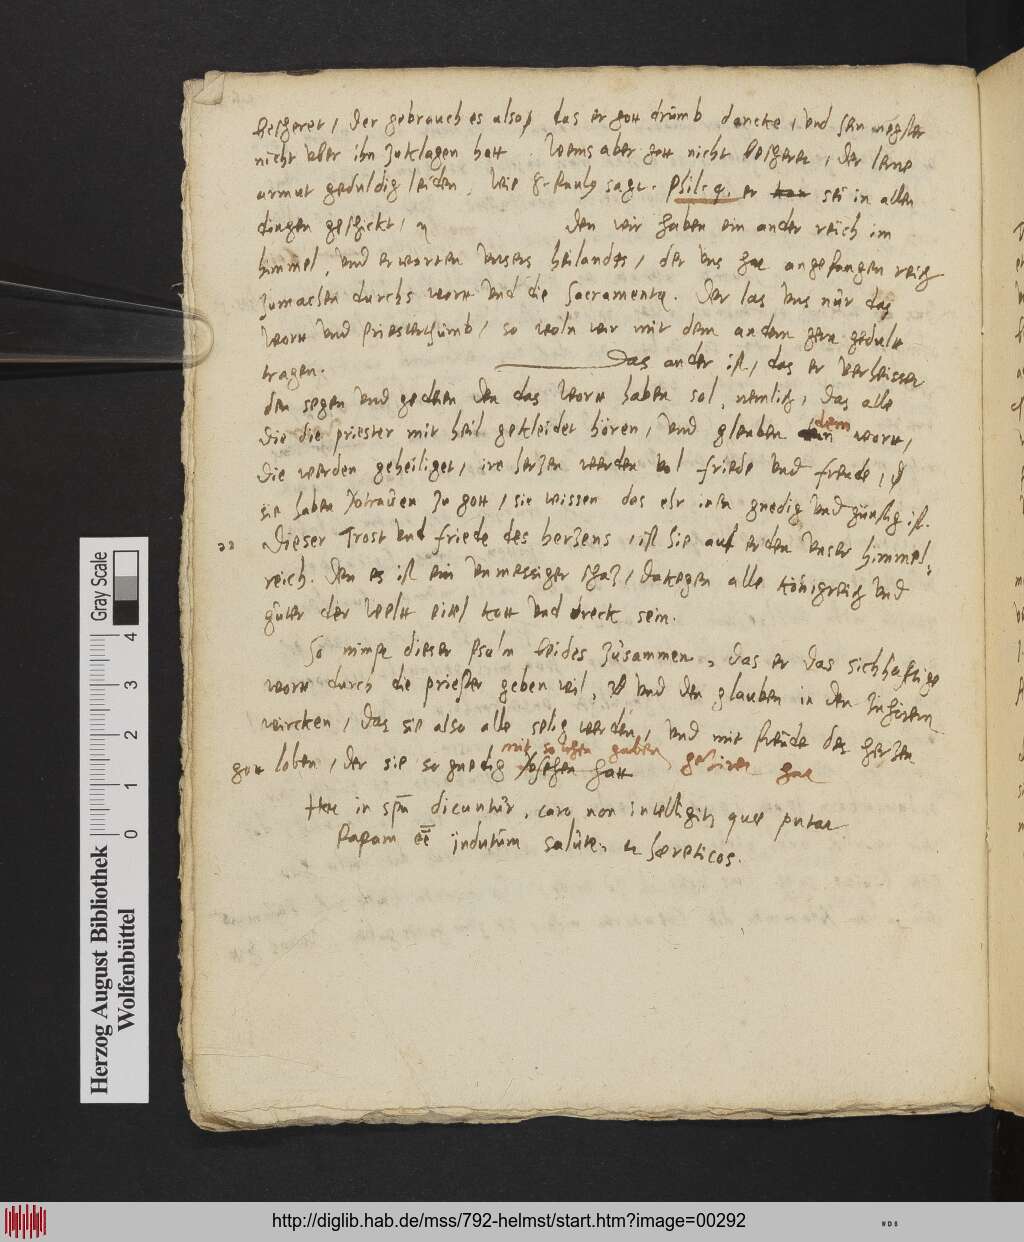 bescheret, der gebrauch es also, das er gott drumb dancke, und sein negster
nicht uber ihn zuklagen hatt. Wems aber gott nicht bescheret, der lerne
armut geduldig leiden, wie S. Paulus sagt. Phil. 4. er sei in allen
dingen geschickt, den wir haben ein ander reich im
himmel, und erwarten unsers heilandes, der uns hat angefangen reich
zumachen durchs wort und die Sacramenta. Der las uns nur das
wort und priesterthumb, so woln wir mit dem andern gern gedult
tragen. Das ander ist, das er verheisset
den segen und gedeien den das wort haben sol, nemlich, das alle
die die priester mit heil gekleidet hören, und gleuben dem wort,
die werden geheiliget, ire herzen werden vol friede und freude,
sie haben zutrauen zu gott, sie wissen das ehr inen gnedig und günstig ist.
Dieser Trost und friede des herzens, ist hie auf erden unser himmel-
reich. Den es ist ein unmessiger schaz, dakegen alle königreich und
güter der welt eitel kott und dreck sein.
So nimpt dieser Psalm beides zusammen, das er das sichhafftige
wort durch die priester geben wil, und den glauben in den zuhörern
wircken, das sie also alle selig werden, und mit freude des herzen
mit solchen gaben
gott loben, der sie so gnedig geziret hat
Hec in spu dicuntur, caro non intelligit, que putat
Papam indutum salute, et hæreticos.
Herzog August Bibliothek
Wolfenbüttel
Gray Scale
0 1 2 3 4
http://diglib.hab.de/mss/792-helmst/start.htm?image=00292